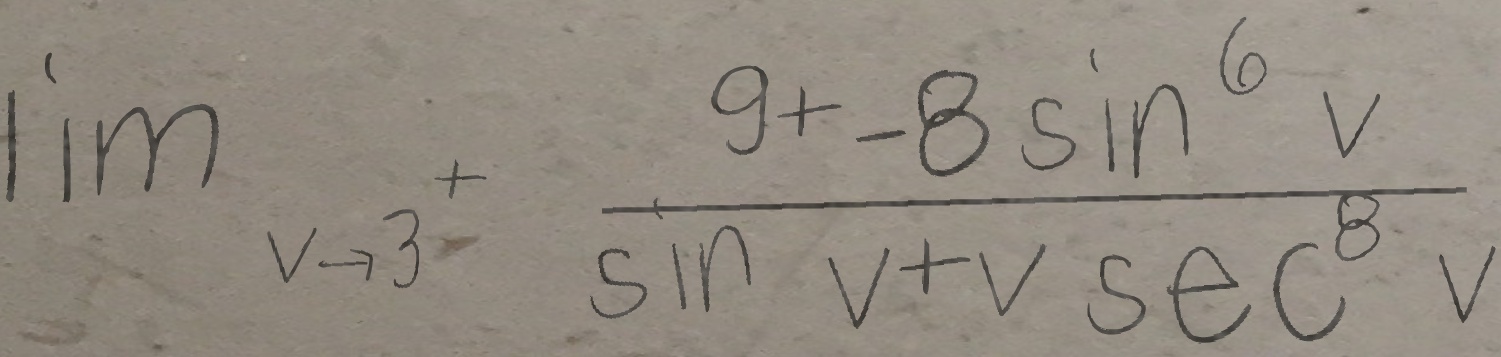 \lim_{v \to 3^{+}} \frac{9 + -8 \sin^{6} v}{\sin v + v \sec^{8} v}